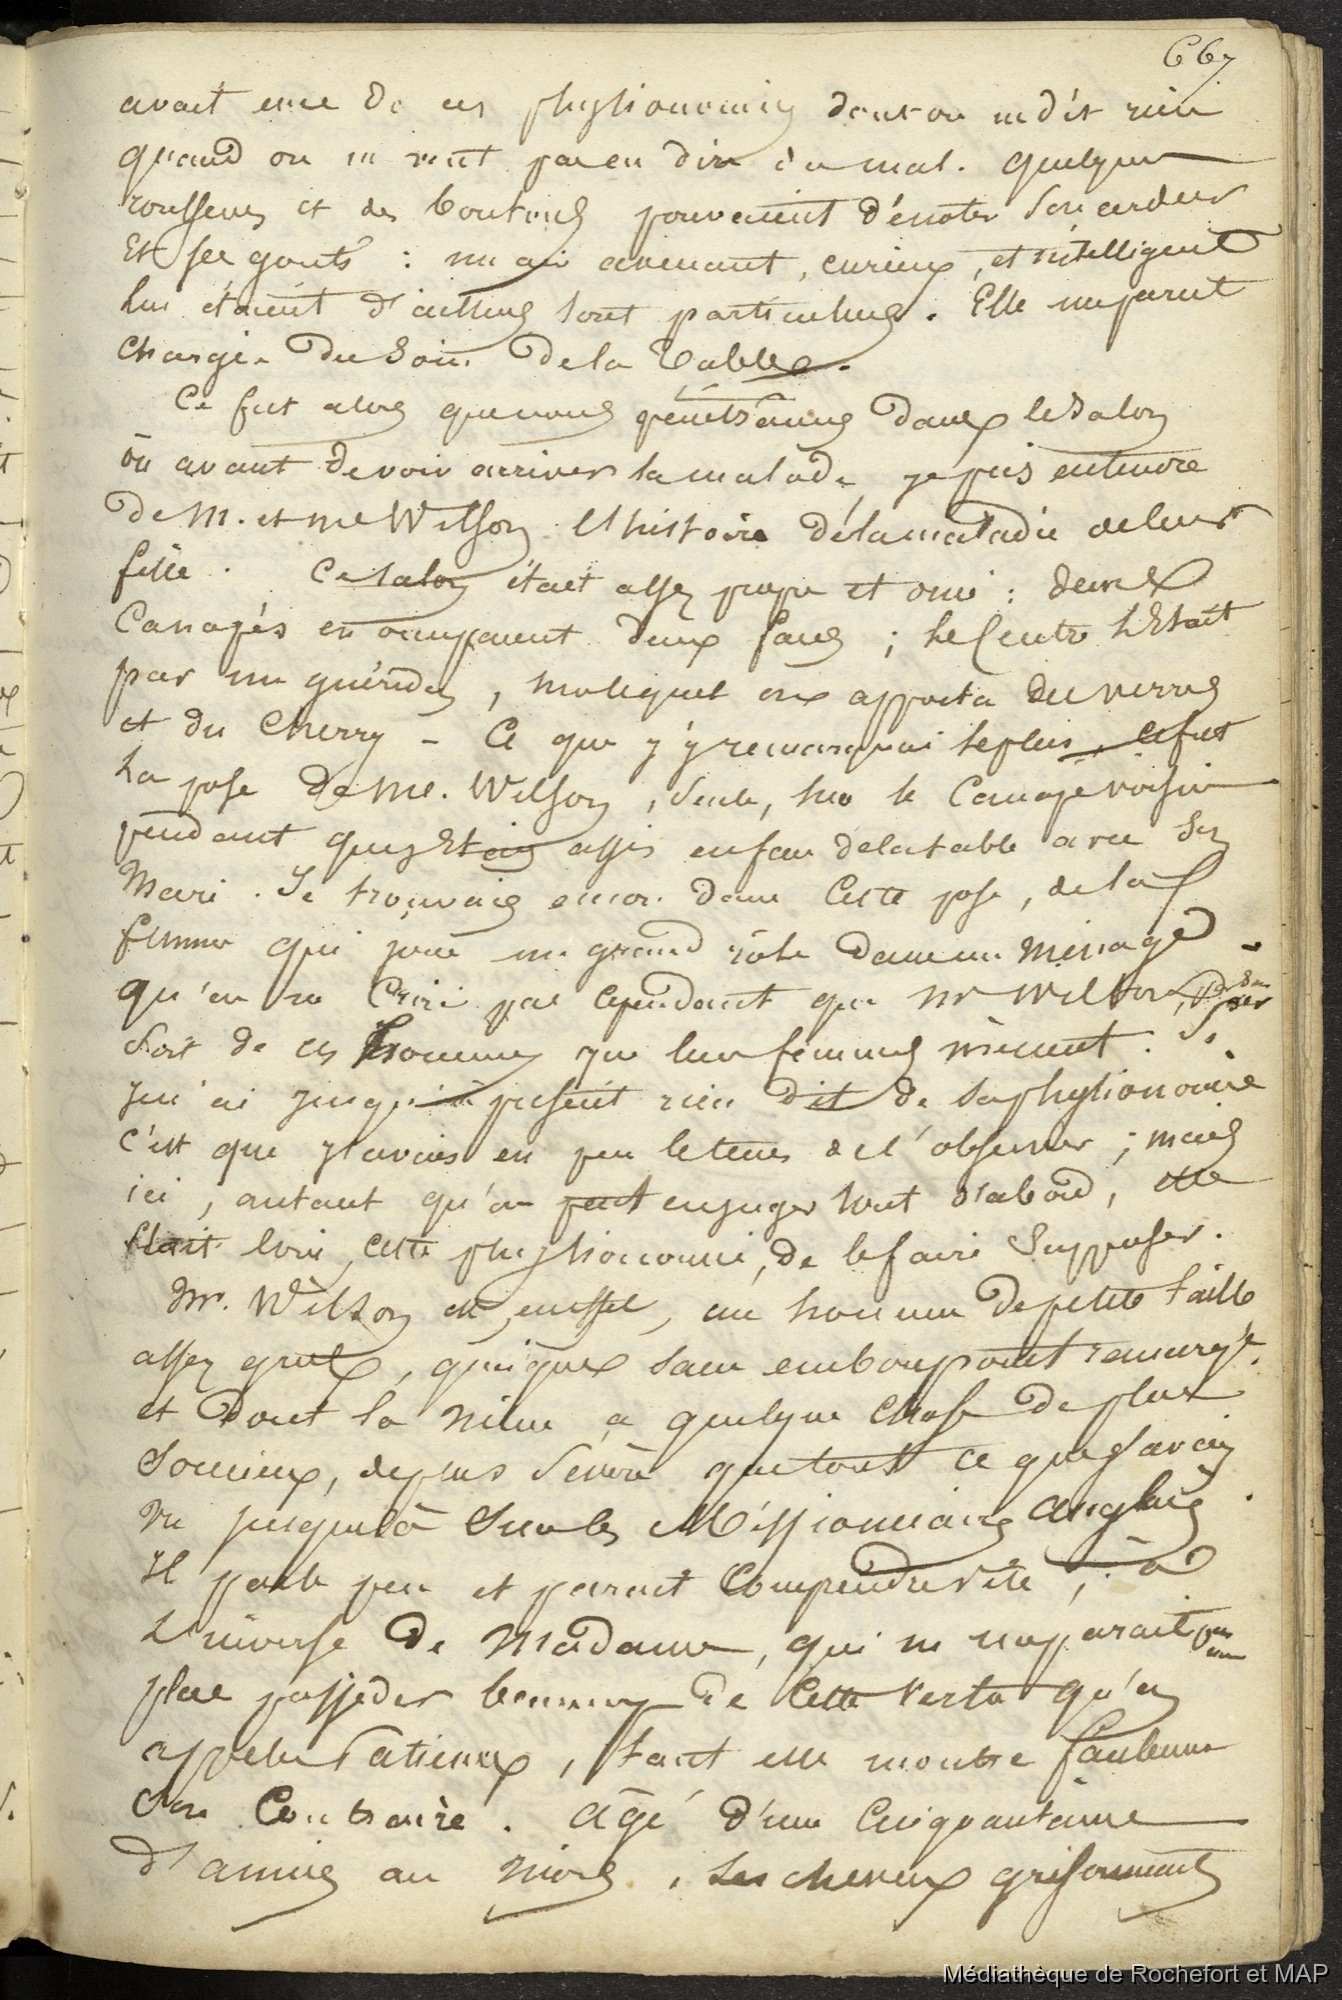 667
avait une de ces physionomies dont on ne dit rien
quand on ne veut pas en dire du mal. quelques
rousseurs et des boutons pouvaient dénoter son ardeur
Et ses gouts : un air avenant, curieux, et intelligent
lui étaient d'ailleurs tout particuliers. Elle me parut
chargée du soin de la table.
Ce fut alors que nous pénétrâmes dans le salon
où avant de voir arriver la malade, je pus entendre
de M. et Me Wilson l'histoire de la maladie de leur
fille. Ce salon était assez propre et orné : deux
Canapés en occupaient deux faces ; le Centre l'Etait
par un guéridon, sur lequel on apporta des verres
et du Cherry - Ce que j'y remarquai le plus, ce fut
la pose de Me. Wilson, seule, sur le Canapé voisin
pendant que j'Etais assis en face de la table avec son
Mari. Je trouvais encore dans Cette pose, de la
femme qui joue un grand rôle dans un Ménage
qu'on ne Croie pas cependant que Mr Wilson,
soit de ces hommes que leurs femmes mènent. Si
je n'ai jusqu'à présent rien dit de sa physionomie
c'est que j'avais eu peu le tems de l'observer ; mais
ici, autant qu'on peut en juger tout d'abord, elle
Etait loin, cette physionomie, de le faire Supposer.
Mr. Wilson est, en effet, un homme de petite taille
assez gros, quoique sans embonpoint remarq.
et dont la mine a quelque chose de plus
soucieux, de plus sévère que tout ce que j'avais
vu jusque là sur les Missionnaires anglais.
Il parle peu et parait Comprendre vite ; à
L'inverse de Madame, qui ne me parait
pas posséder beaucoup de Cette vertu qu'on
appelle Patience, tant elle montre
son Contraire. Agé d'une Cinquantaine
d'années au moins, ses cheveux grisonnants
Médiathèque de Rochefort et MAP